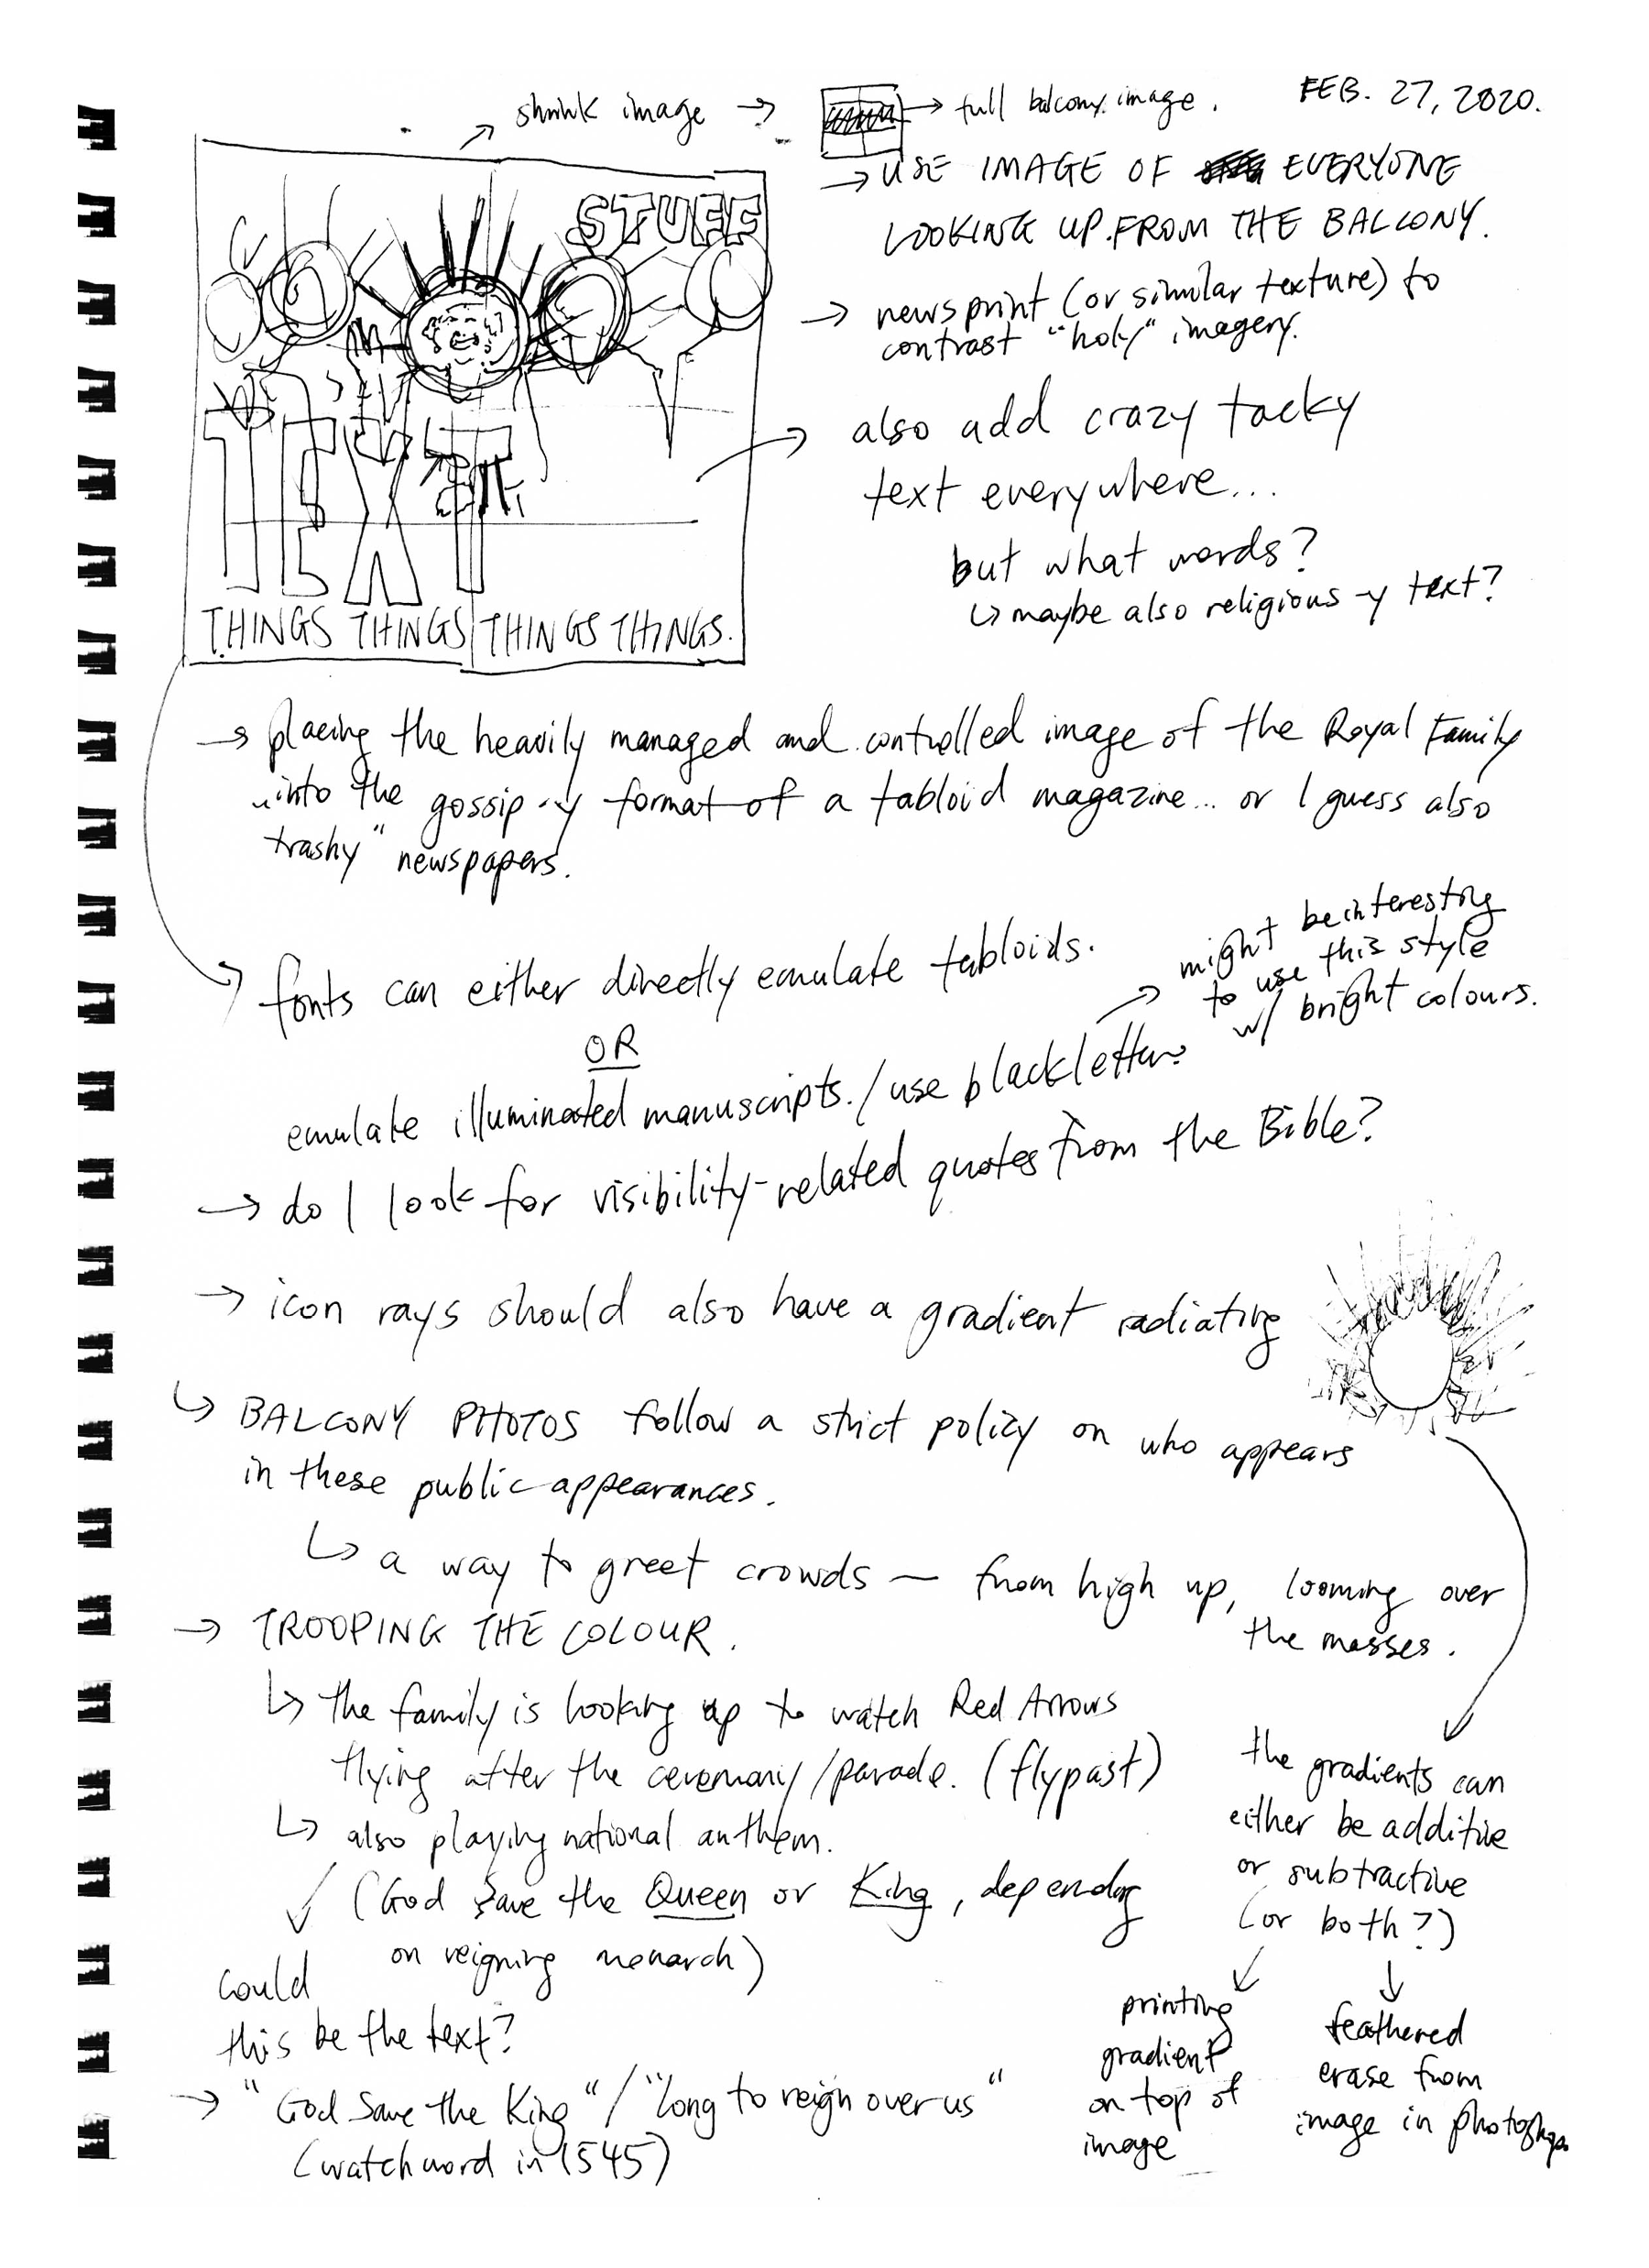 FEB. 27, 2020.
shrink image → → full balcony image.
→ USE IMAGE OF EVERYONE
LOOKING UP FROM THE BALCONY.
→ newsprint (or similar texture) to
contrast "holy" imagery.
STUFF
TEXT
THINGS THINGS THINGS THINGS.
→ also add crazy tacky
text everywhere...
but what words?
↳ maybe also religious-y text?
→ placing the heavily managed and controlled image of the Royal Family
into the gossip-y format of a tabloid magazine... or I guess also
"trashy" newspapers.
→ fonts can either directly emulate tabloids.
OR
emulate illuminated manuscripts. / use blackletter?
→ might be interesting
to use this style
w/ bright colours.
→ do I look for visibility-related quotes from the Bible?
→ icon rays should also have a gradient radiating
↳ BALCONY PHOTOS follow a strict policy on who appears
in these public appearances.
↳ a way to greet crowds — from high up, looming over
the masses.
→ TROOPING THE COLOUR.
↳ the family is looking up to watch Red Arrows
flying after the ceremony/parade. (flypast)
↳ also playing national anthem.
(God Save the Queen or King, depending
on reigning monarch)
could
this be the text?
→ "God Save the King" / "long to reign over us"
(watchword in 1545)
the gradients can
either be additive
or subtractive
(or both?)
printing
gradient
on top of
image
feathered
erase from
image in photoshop